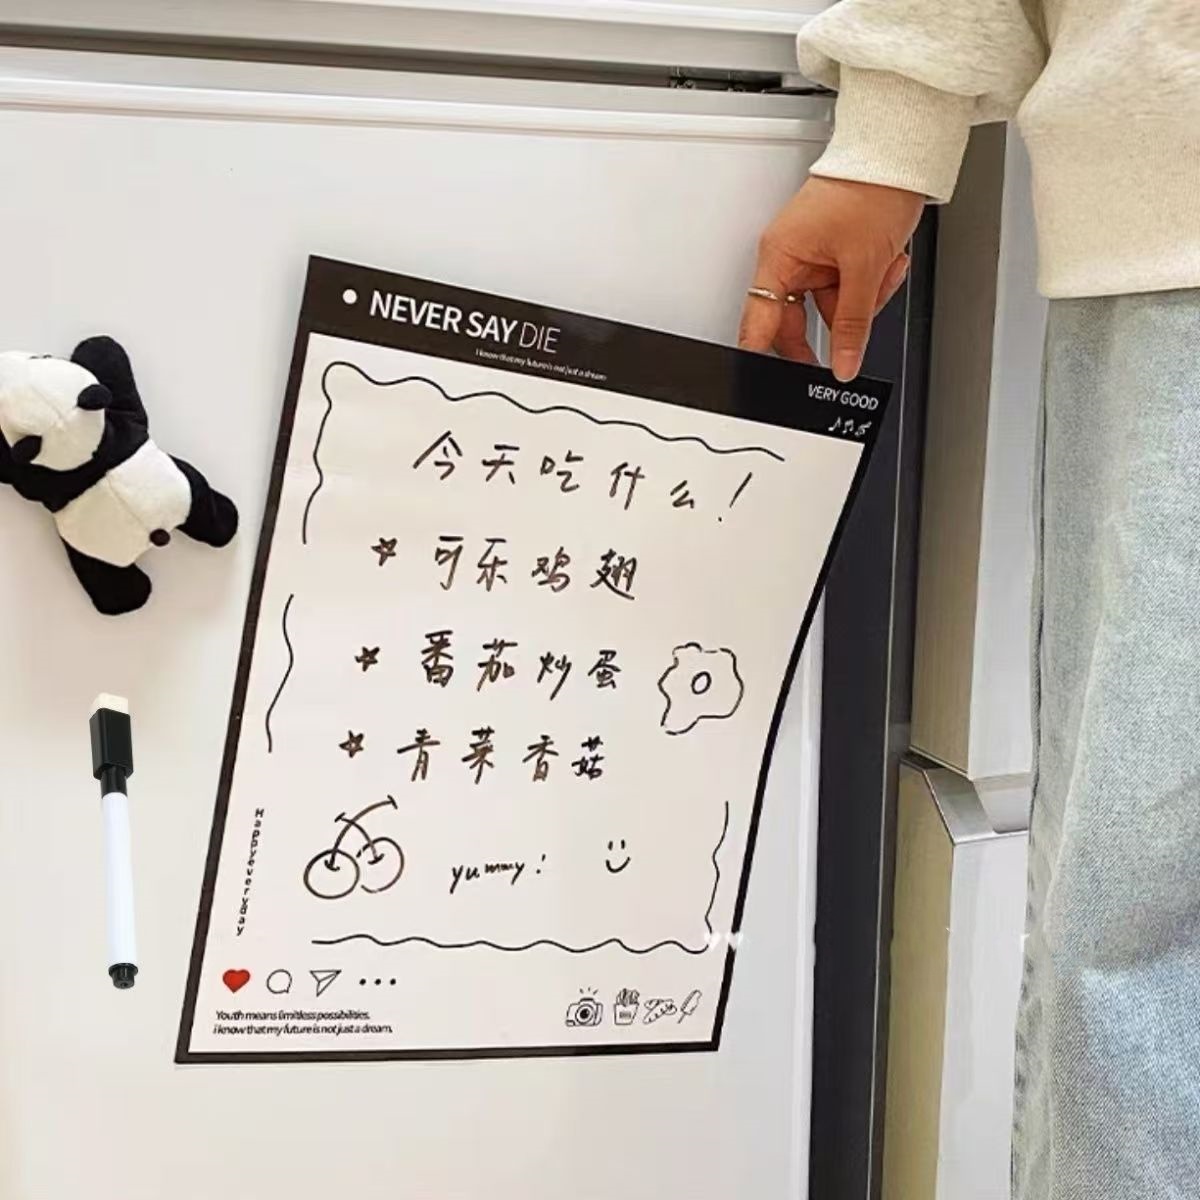 NEVER SAY DIE
I know that my future is not just a dream
VERY GOOD
今天吃什么！
可乐鸡翅
番茄炒蛋
青菜香菇
yummy!
Happyeveryday
Youth means limitless possibilities.
i know that my future is not just a dream.